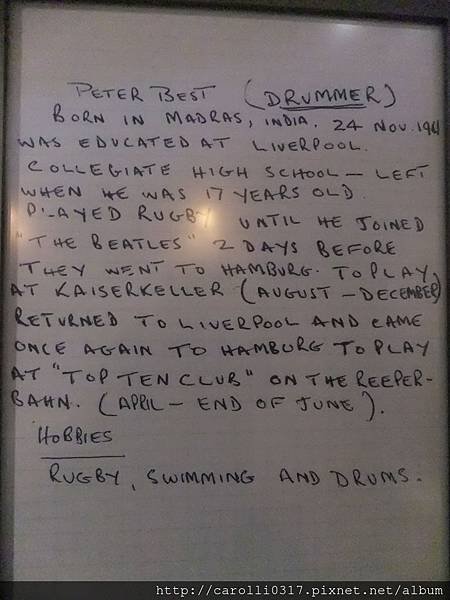 PETER BEST (DRUMMER)
BORN IN MADRAS, INDIA. 24 NOV. 1941
WAS EDUCATED AT LIVERPOOL.
COLLEGIATE HIGH SCHOOL — LEFT
WHEN HE WAS 17 YEARS OLD.
PLAYED RUGBY UNTIL HE JOINED
"THE BEATLES" 2 DAYS BEFORE
THEY WENT TO HAMBURG. TO PLAY
AT KAISERKELLER (AUGUST — DECEMBER)
RETURNED TO LIVERPOOL AND CAME
ONCE AGAIN TO HAMBURG TO PLAY
AT "TOP TEN CLUB" ON THE REEPER-
BAHN. (APRIL — END OF JUNE).
HOBBIES
RUGBY, SWIMMING AND DRUMS.
http://carolli0317.pixnet.net/album